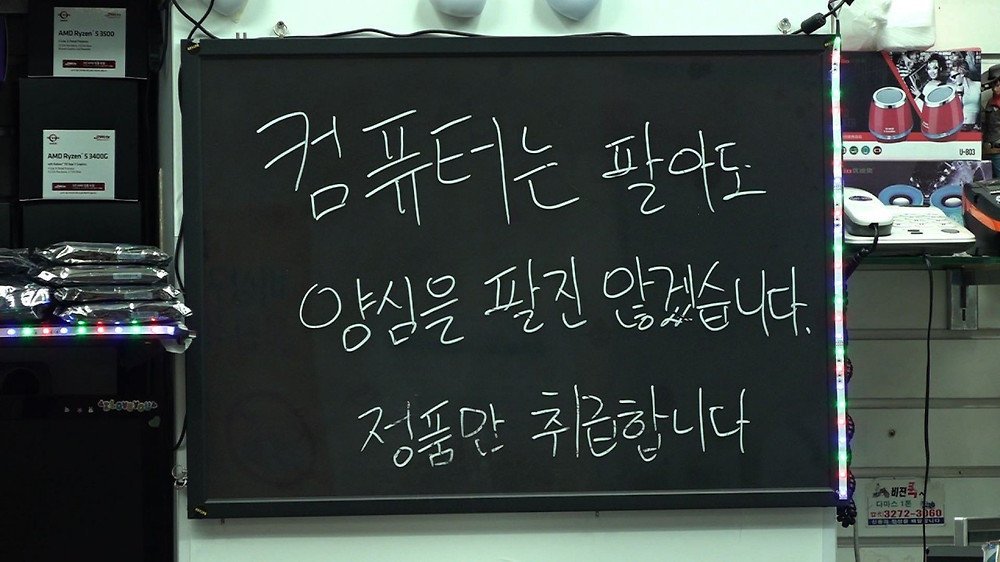 컴퓨터는 팔아도
양심을 팔진 않겠습니다.
정품만 취급합니다
AMD Ryzen 5 3500
AMD Ryzen 5 3400G
I LOVE YOU
U-803
비젼콕
다마스 1톤
3272-3060